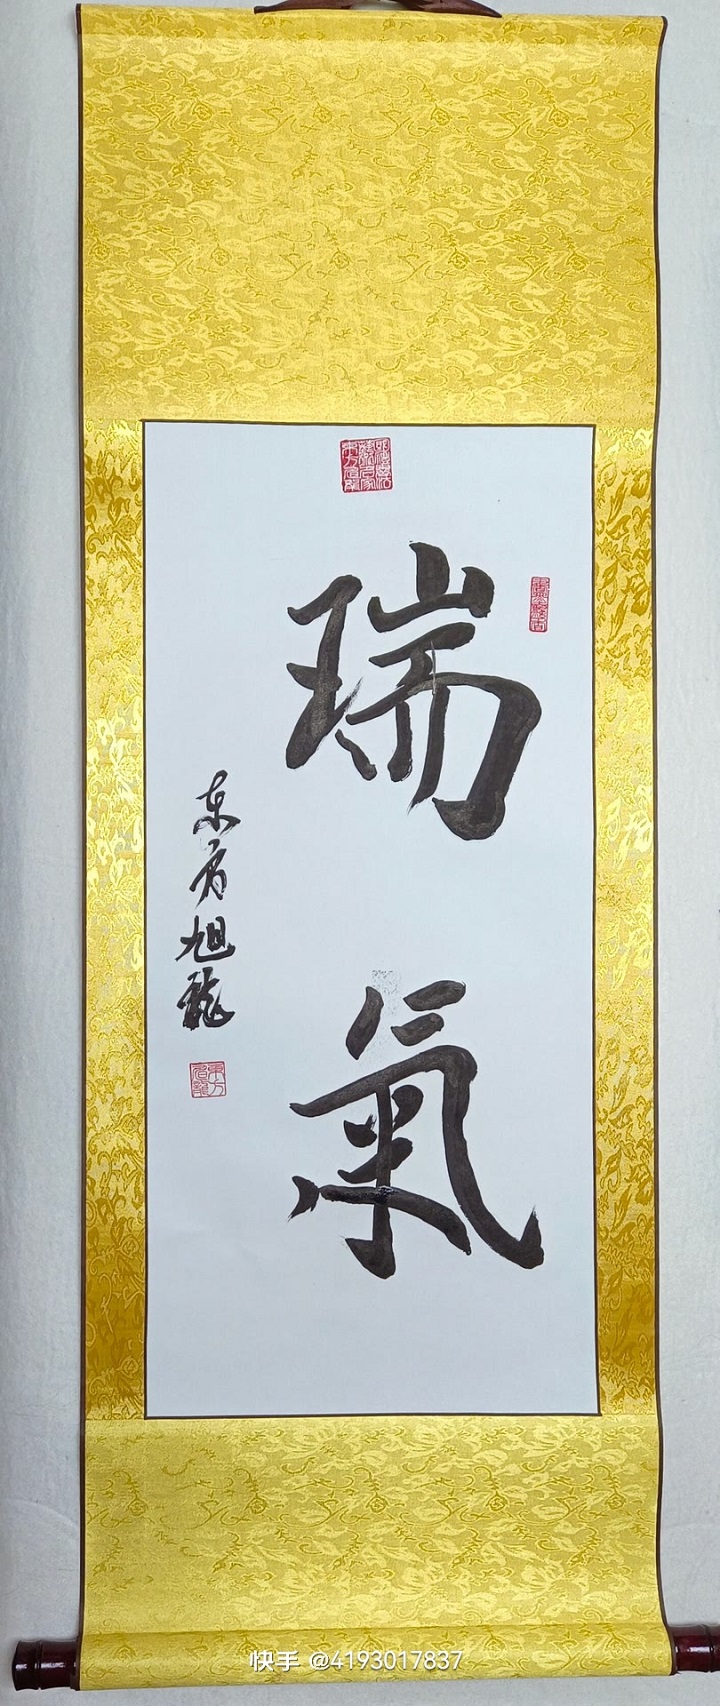 瑞氣
东方旭龍
快手 @4193017837